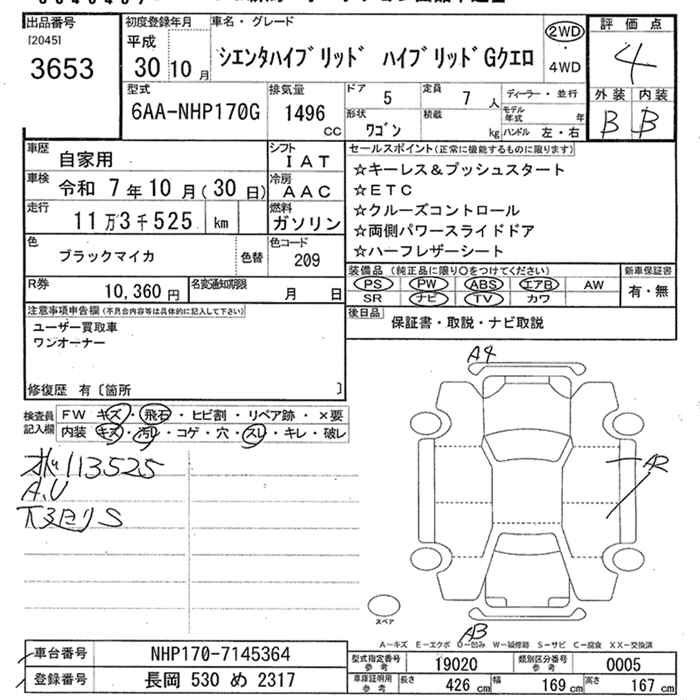 出品番号
[2045]
3653
初度登録年月
平成
30 10 月
車名・グレード
シエンタハイブリッド ハイブリッドGクエロ
2WD
・
4WD
評価点
4
外装 内装
B B
型式
6AA-NHP170G
排気量
1496
CC
ドア
5
定員
7 人
形状
ワゴン
積載
kg
ディーラー・並行
モデル年式 年
ハンドル 左・右
車歴
自家用
シフト
IAT
車検
令和 7年10月(30日)
冷房
AAC
走行
11万3千525 km
燃料
ガソリン
色
ブラックマイカ
色替
色コード
209
R券
10,360円
名変通知期限
月 日
セールスポイント(正常に機能するものに限ります)
☆キーレス&プッシュスタート
☆ETC
☆クルーズコントロール
☆両側パワースライドドア
☆ハーフレザーシート
装備品(純正品に限り○をつけてください)
PS PW ABS エアB AW
SR ナビ TV カワ
新車保証書
有・無
後日品
保証書・取説・ナビ取説
注意事項申告欄(不具合内容等は具体的に記入して下さい)
ユーザー買取車
ワンオーナー
修復歴 有〔箇所 〕
検査員
記入欄
FW キズ・飛石・ヒビ割・リペア跡・×要
内装 キズ・汚レ・コゲ・穴・スレ・キレ・破レ
113525
A.U
A4
A2
A3
スペア
A-キズ E-エクボ U-凹み W-補修跡 S-サビ C-腐食 XX-交換済
車台番号
NHP170-7145364
登録番号
長岡 530 め 2317
型式指定番号
参考
19020
類別区分番号
参考
0005
車庫証明用
参考
長さ 426 cm 幅 169 cm 高さ 167 cm